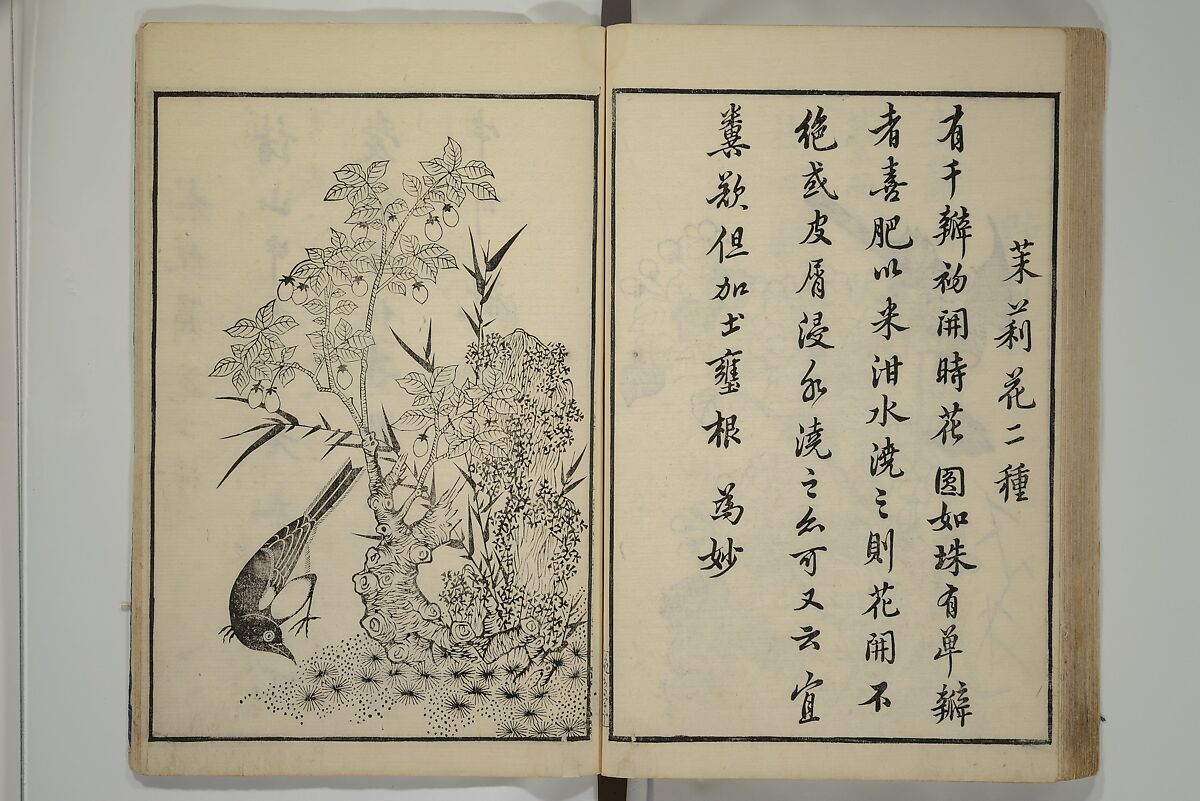 茉莉花二種
有千瓣初開時花圓如珠有单瓣
者喜肥以米泔水澆之則花開不
絶或皮屑浸水澆之亦可又云宜
糞歟但加土壅根為妙